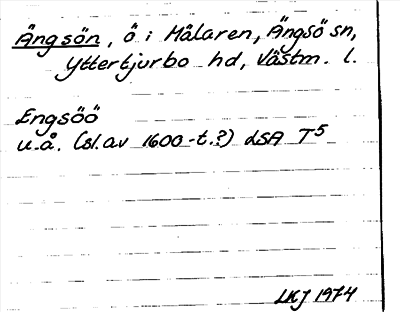 Ängsön, ö i Mälaren, Ängsö sn,
Yttertjurbo hd, Västm. l.
Engsöö
u.å. (sl. av 1600-t.?) LSA T5
LKJ 1974